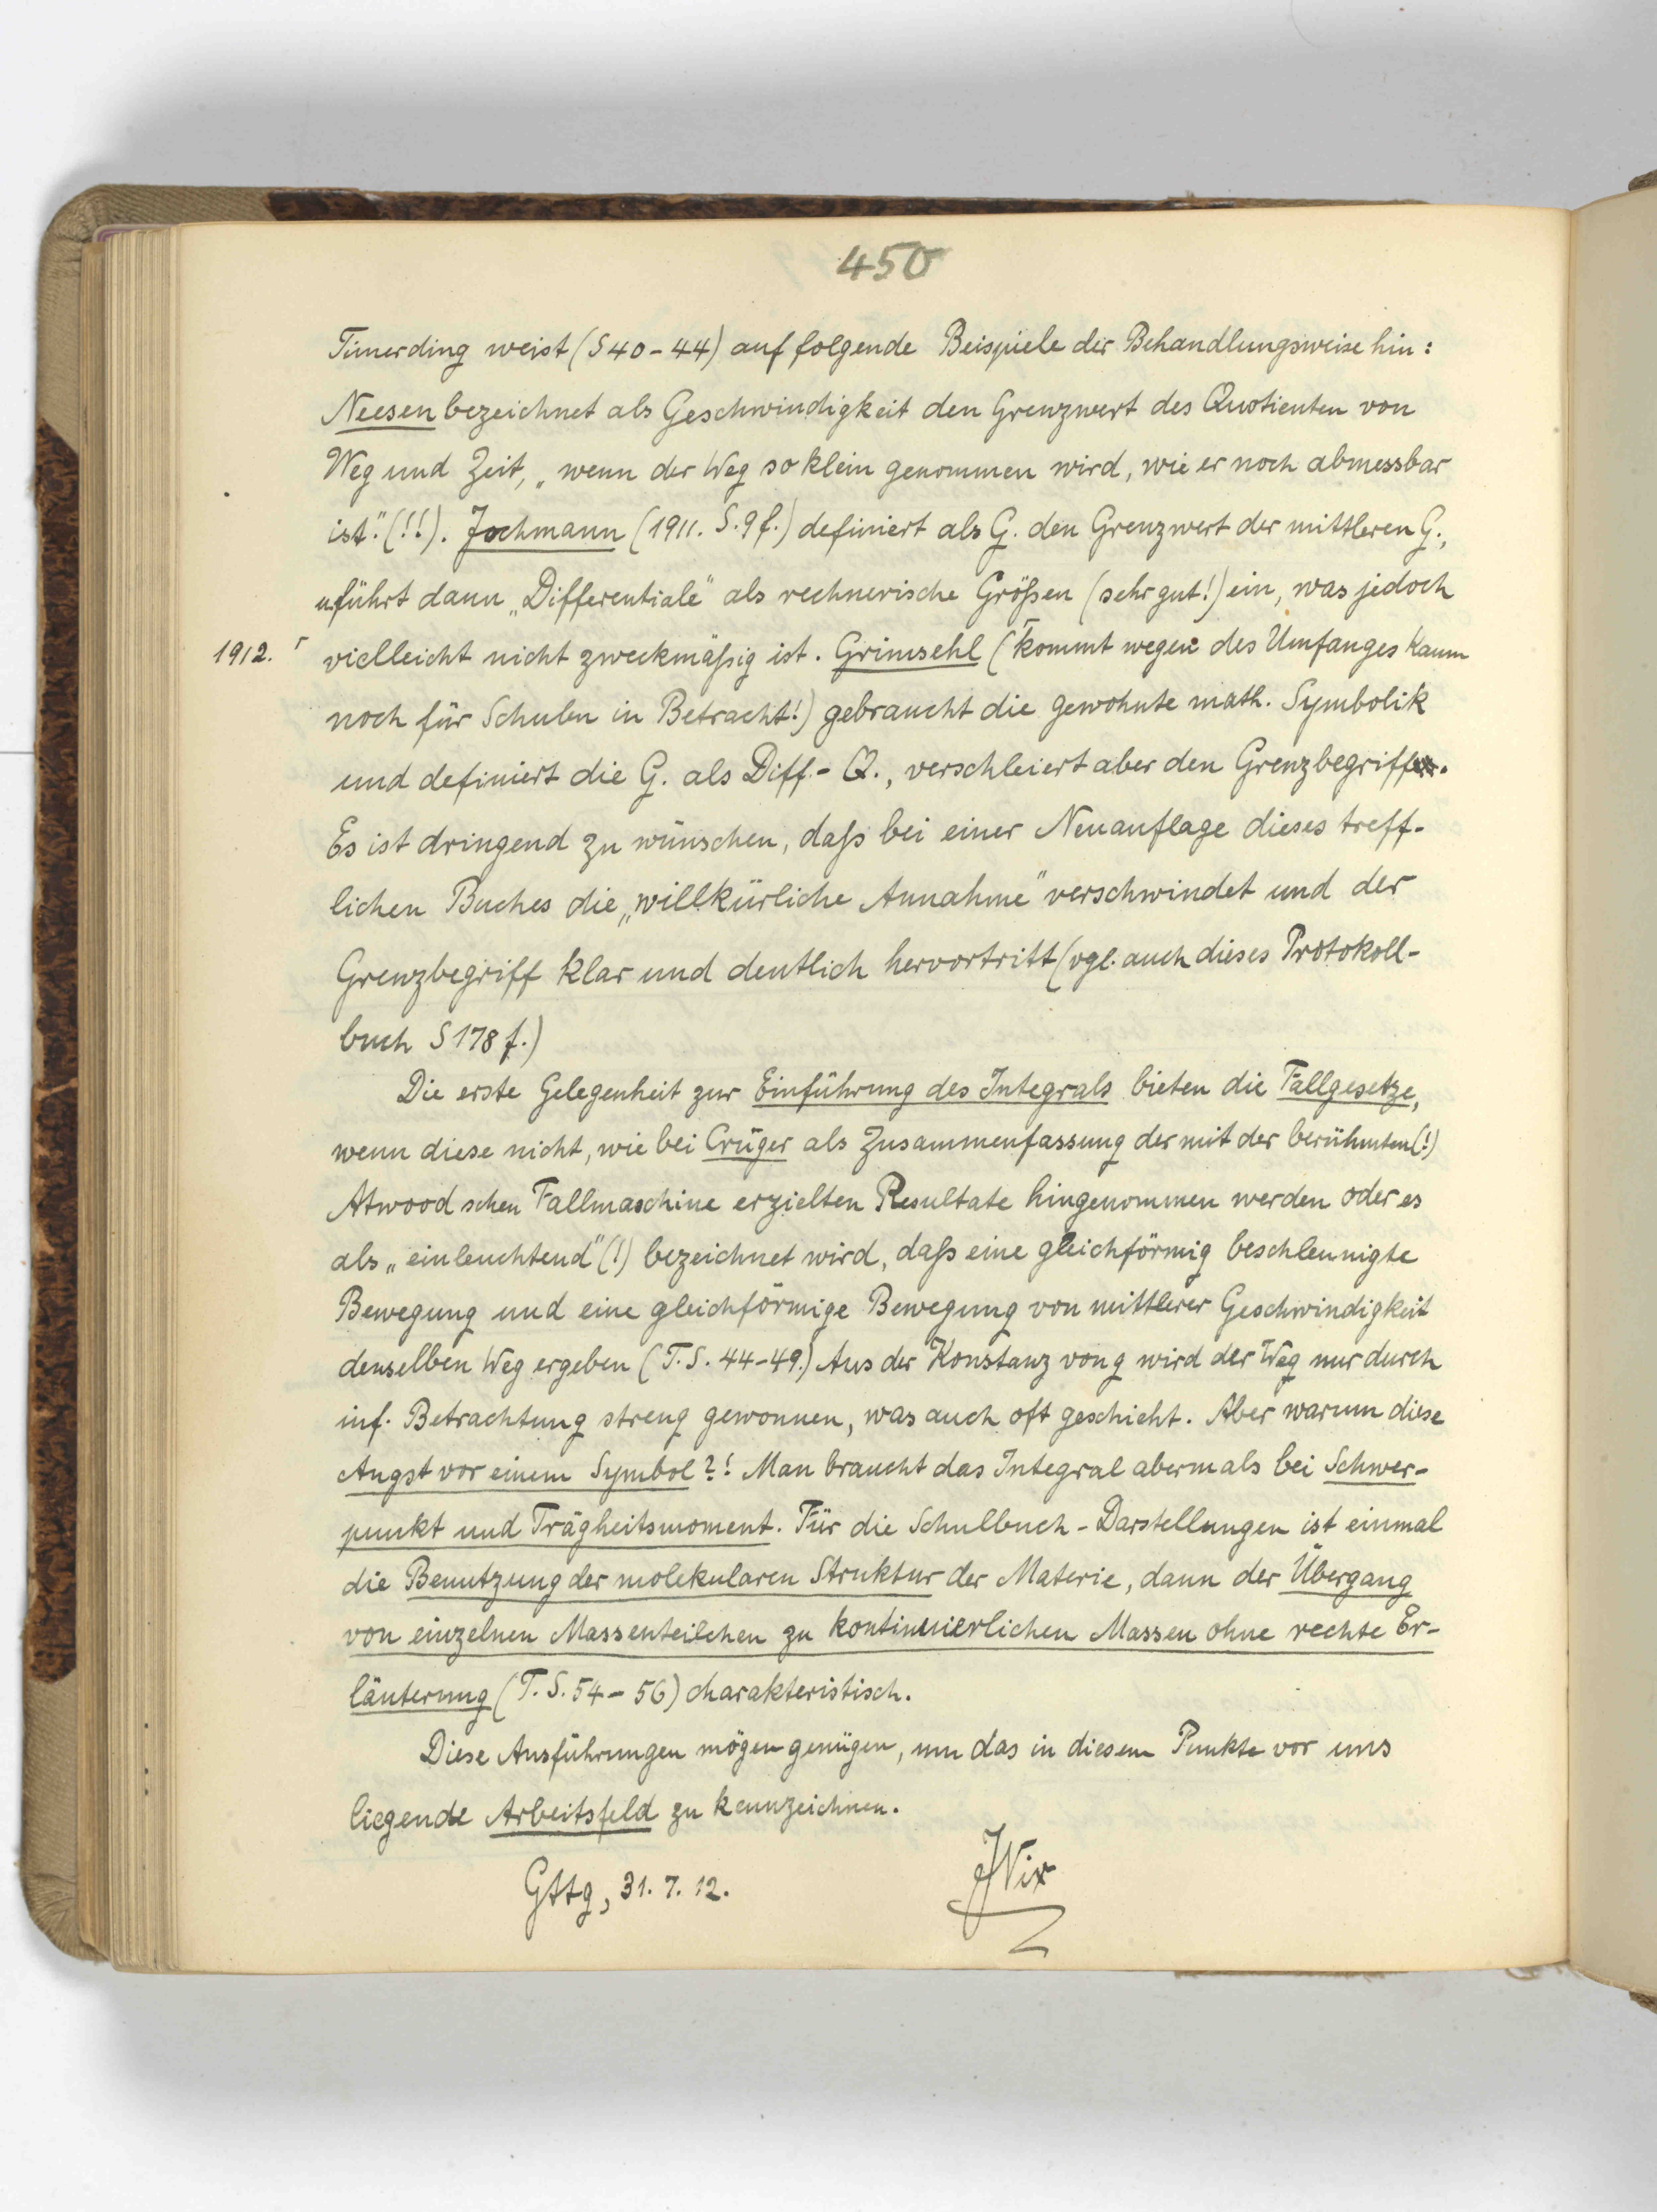 450
Timerding weist (S 40-44) auf folgende Beispiele der Behandlungsweise hin:
Neesen bezeichnet als Geschwindigkeit den Grenzwert des Quotienten von
Weg und Zeit, „wenn der Weg so klein genommen wird, wie er noch abmessbar
ist." (!!). Jochmann (1911. S. 9 f.) definiert als G. den Grenzwert der mittleren G.,
u. führt dann „Differentiale" als rechnerische Größen (sehr gut!) ein, was jedoch
1912. ┌ vielleicht nicht zweckmäßig ist. Grimsehl (┌ kommt wegen des Umfanges kaum
noch für Schulen in Betracht!) gebraucht die gewohnte math. Symbolik
und definiert die G. als Diff.-Q., verschleiert aber den Grenzbegriff.
Es ist dringend zu wünschen, daß bei einer Neuauflage dieses treff-
lichen Buches die „willkürliche Annahme" verschwindet und der
Grenzbegriff klar und deutlich hervortritt (vgl. auch dieses Protokoll-
buch S 178 f.)
Die erste Gelegenheit zur Einführung des Integrals bieten die Fallgesetze,
wenn diese nicht, wie bei Crüger als Zusammenfassung der mit der berühmten (!)
Atwood schen Fallmaschine erzielten Resultate hingenommen werden oder es
als „einleuchtend" (!) bezeichnet wird, daß eine gleichförmig beschleunigte
Bewegung und eine gleichförmige Bewegung von mittlerer Geschwindigkeit
denselben Weg ergeben (T. S. 44-49.) Aus der Konstanz von g wird der Weg nur durch
inf. Betrachtung streng gewonnen, was auch oft geschieht. Aber warum diese
Angst vor einem Symbol?! Man braucht das Integral abermals bei Schwer-
punkt und Trägheitsmoment. Für die Schulbuch-Darstellungen ist einmal
die Benutzung der molekularen Struktur der Materie, dann der Übergang
von einzelnen Massenteilchen zu kontinuierlichen Massen ohne rechte Er-
läuterung (T. S. 54-56) charakteristisch.
Diese Ausführungen mögen genügen, um das in diesem Punkte vor uns
liegende Arbeitsfeld zu kennzeichnen.
Gttg, 31. 7. 12.
JNix